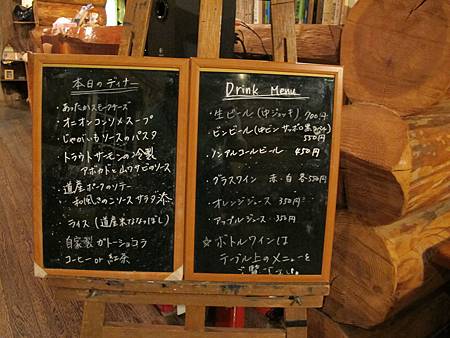 本日のディナー
・あったかスモークチーズ
・オニオンコンソメスープ
・じゃがいもソースのパスタ
・トラウトサーモンの冷製
アボカドと山ワサビのソース
・道産ポークのソテー
和風きのこソース サラダ添
・ライス（道産米ななつぼし）
・自家製 ガトーショコラ
・コーヒー or 紅茶
Drink Menu
・生ビール（中ジョッキ） 700円
・ビンビール（中ビン サッポロ黒ラベル）
550円
・ノンアルコールビール 450円
・グラスワイン 赤・白 各550円
・オレンジジュース 350円
・アップルジュース 350円
☆ボトルワインは
テーブル上のメニューを
ご覧下さい。